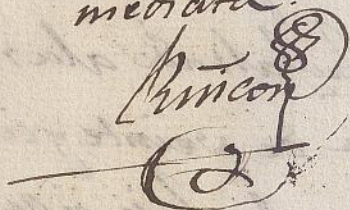 mediata.
Rincon